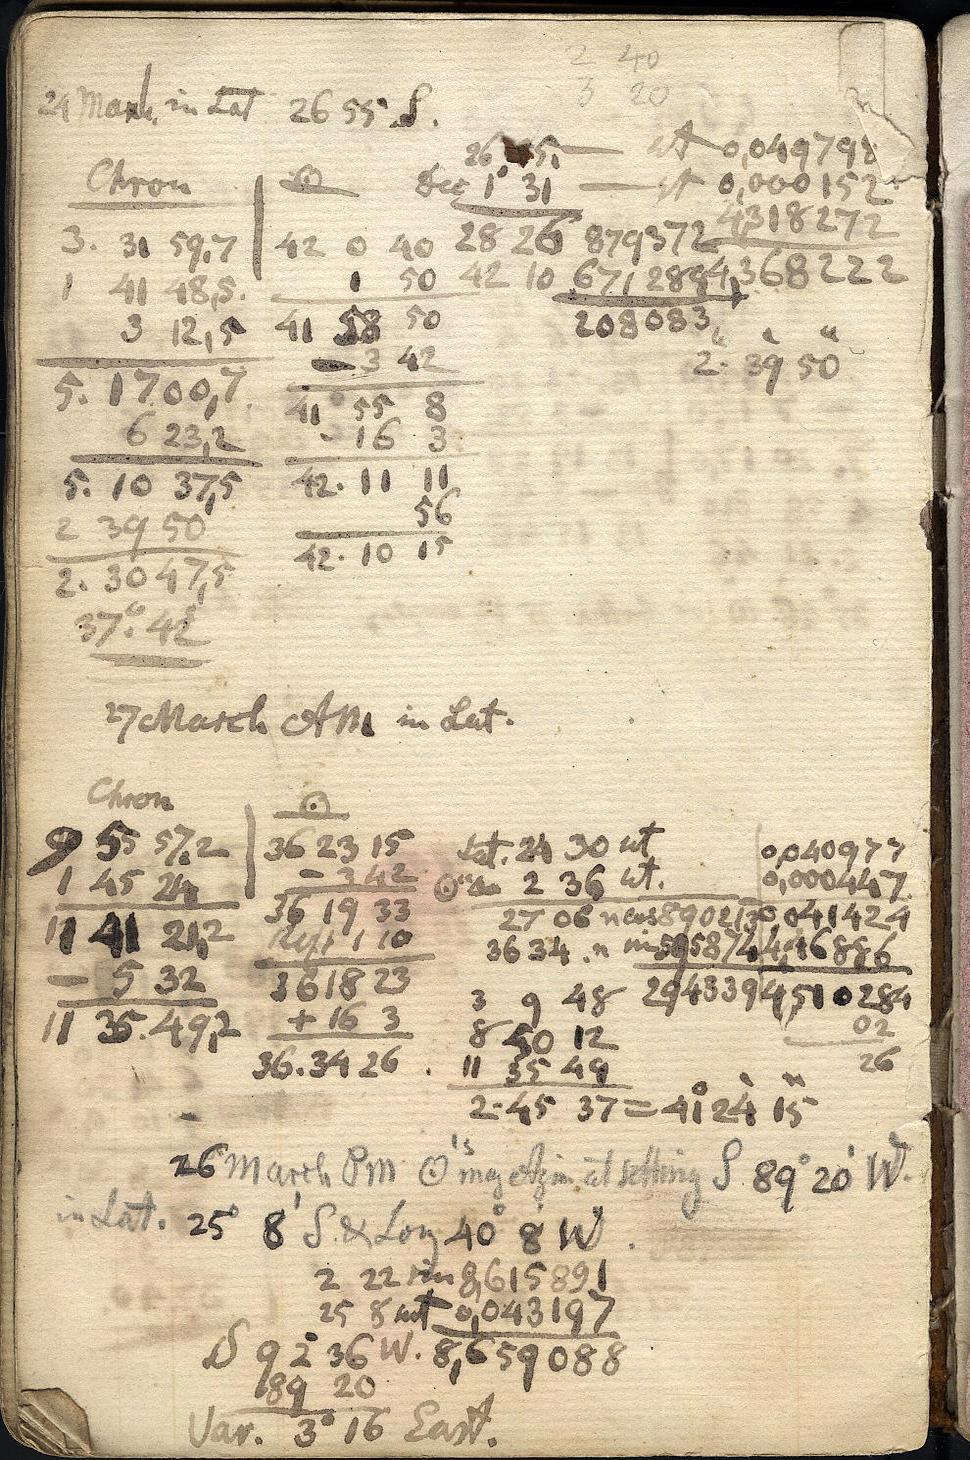 2 40
3 20
24 March in Lat 26 55 S.
Chron
3. 31 59,7
1 41 48,5.
3 12,5
5. 17 00,7
6 23,2
5. 10 37,5
2 39 50
2. 30 47,5
37° 42'
☉
42 0 40
1 50
41 58 50
- 3 42
41° 55 8
- 16 3
42. 11 11
56
42. 10 15
26 55. — ct 0,049798
Dec 1° 31 — ct 0,000152
28 26 879372 4318272
42 10 671289 4,368222
208083
2. 39 50
27 March AM in Lat.
Chron
9 55 57,2
1 45 24
11 41 21,2
- 5 32
11 35. 49,2
☉
36 23 15
- 3 42
36 19 33
Refr 1 10
36 18 23
+ 16 3
36. 34 26.
Lat. 24 30 ct 0,040977
☉'s Dec 2 36 ct. 0,000447
27 06 n cos 890213 0,041424
36 34. n sin 595874 4,46886
294339 4,510284
02
26
3 9 48
8 50 12
11 35 49
2. 45 37 = 41° 24' 15"
26 March PM ☉'s mag Azim at setting S. 89° 20' W.
in Lat. 25° 8' S. & Long 40° 8' W.
2 22 sin 8,615891
25 8 ct 0,043197
S 92° 36 W. 8,659088
89 20
Var. 3° 16 East.